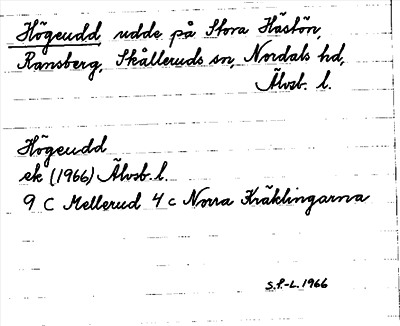 Högeudd udde på Stora Hästön,
Ransberg, Skålleruds sn, Nordals hd,
Älvsb. l.
Högeudd
ek (1966) Älvsb. l.
9 C Mellerud 4 c Norra Kräklingarna
S.P.-L. 1966